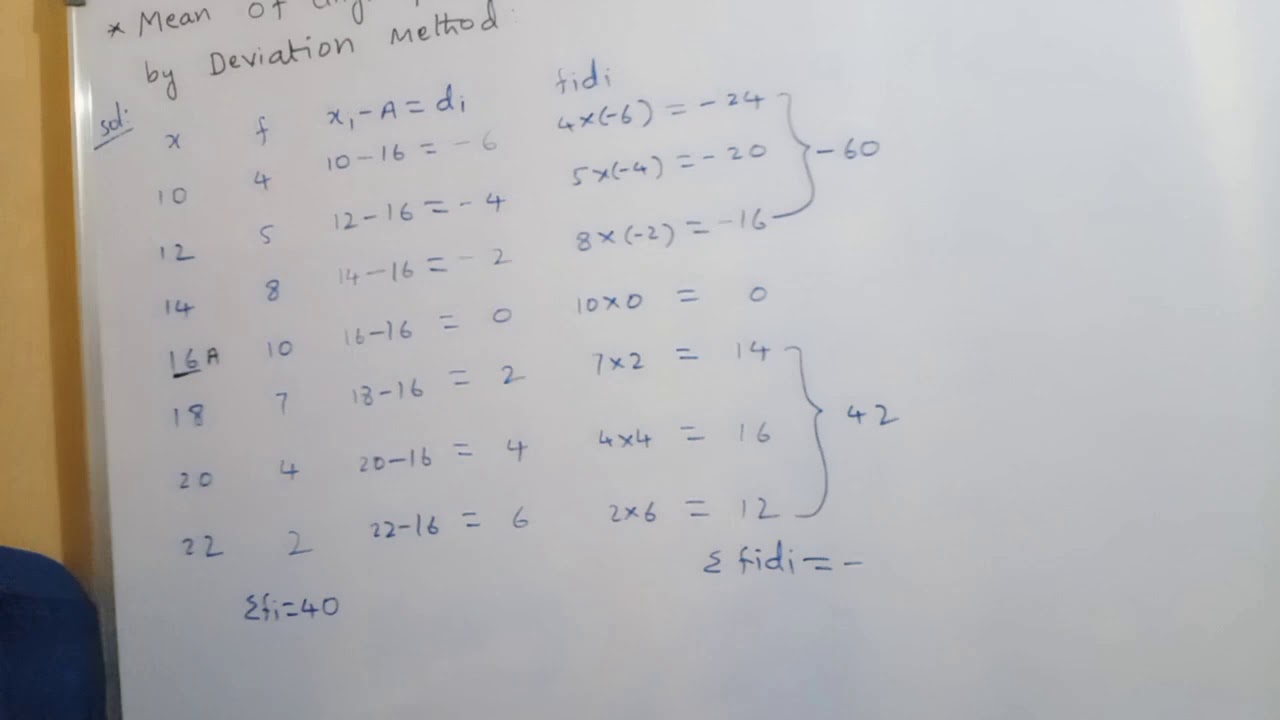 * Mean of
by Deviation Method:
sol:
x f x₁-A = di fidi
10 4 10-16 = -6 4×(-6) = -24
12 5 12-16 = -4 5×(-4) = -20 -60
14 8 14-16 = -2 8×(-2) = -16
16 A 10 16-16 = 0 10×0 = 0
18 7 18-16 = 2 7×2 = 14
20 4 20-16 = 4 4×4 = 16 42
22 2 22-16 = 6 2×6 = 12
Σfi=40 Σ fidi = -